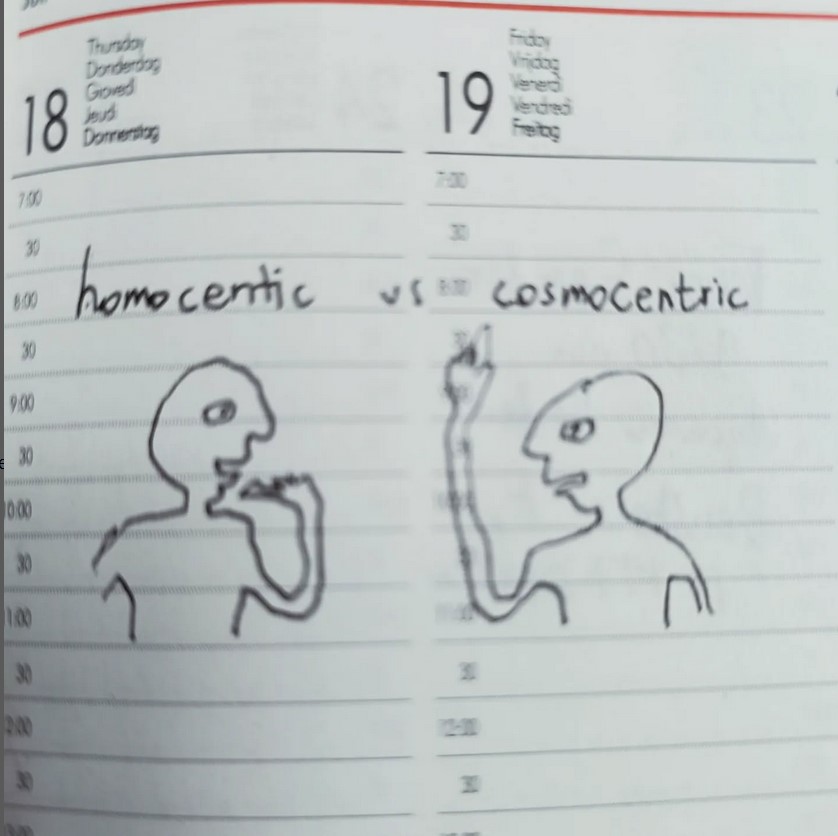 18
Thursday
Donderdag
Giovedì
Jeudi
Donnerstag
19
Friday
Vrijdag
Venerdì
Vendredi
Freitag
7:00
30
8:00
30
9:00
30
10:00
30
30
30
7:00
30
8:00
homocentic vs cosmocentric
30
12:00
30